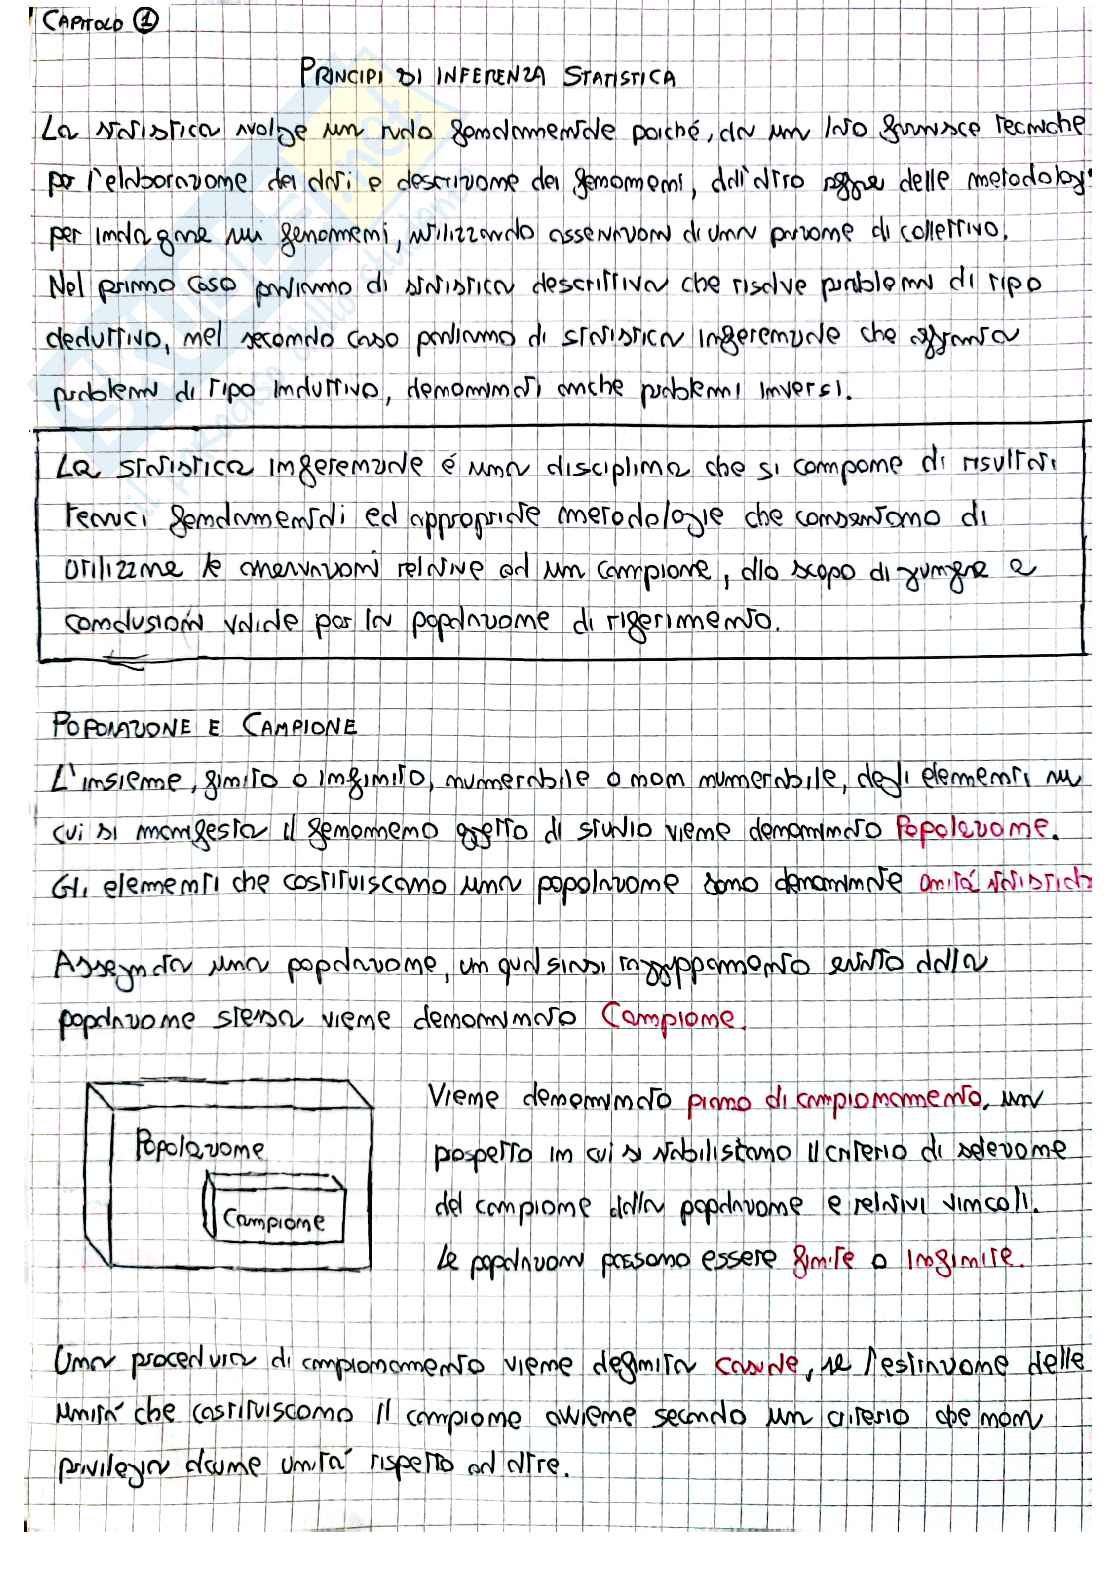 CAPITOLO 1
PRINCIPI DI INFERENZA STATISTICA
La statistica svolge un ruolo fondamentale poiché, da un lato fornisce tecniche
per l'elaborazione dei dati e descrizione dei fenomeni, dall'altro delle metodolog
per indagine sui fenomeni, utilizzando osservazioni di una porzione di collettivo.
Nel primo caso parliamo di statistica descrittiva che risolve problemi di tipo
deduttivo, nel secondo caso parliamo di statistica inferenziale che affronta
problemi di tipo induttivo, denominati anche problemi inversi.
La statistica inferenziale é una disciplina che si compone di risultati
tecnici fondamentali ed appropriate metodologie che consentono di
utilizzare le osservazioni relative ad un campione, allo scopo di giungere a
conclusioni valide per la popolazione di riferimento.
POPOLAZIONE E CAMPIONE
L'insieme, finito o infinito, numerabile o non numerabile, degli elementi su
cui si manifesta il fenomeno oggetto di studio viene denominato Popolazione.
Gli elementi che costituiscono una popolazione sono denominate unità statistich
Assegnata una popolazione, un qualsiasi raggruppamento estratto dalla
popolazione stessa viene denominato Campione.
Popolazione
Campione
Viene denominato piano di campionamento, un
prospetto in cui si stabiliscono il criterio di selezione
del campione dalla popolazione e relativi vincoli.
Le popolazioni possono essere finite o infinite.
Una procedura di campionamento viene definita casuale, se l'estrazione delle
unità che costituiscono il campione avviene secondo un criterio che non
privilegia alcune unità rispetto ad altre.